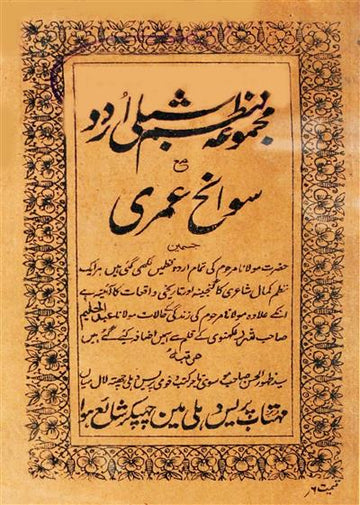 مجموعہ نظم شبلی اردو
مع
سوانح عمری
جسمیں
حضرت مولانا مرحوم کی تمام اردو نظمیں لکھی گئی ہیں ہر ایک
نظم کمال شاعری کا گنجینہ اور تاریخی واقعات کا آئینہ ہے
اسکے علاوہ مولانا مرحوم کی زندگی کے حالات مولانا عبد الحلیم
صاحب شرر لکھنوی کے قلم سے ہمیں اضافہ کیے گئے ہیں
مرتبہ
سید ظہور الحسن صاحب موسوی تاجر کتب قومی پریس دہلی چھتہ لال میاں
مہتاب پریس دہلی میں چھپکر شائع ہوا
قیمت ۶